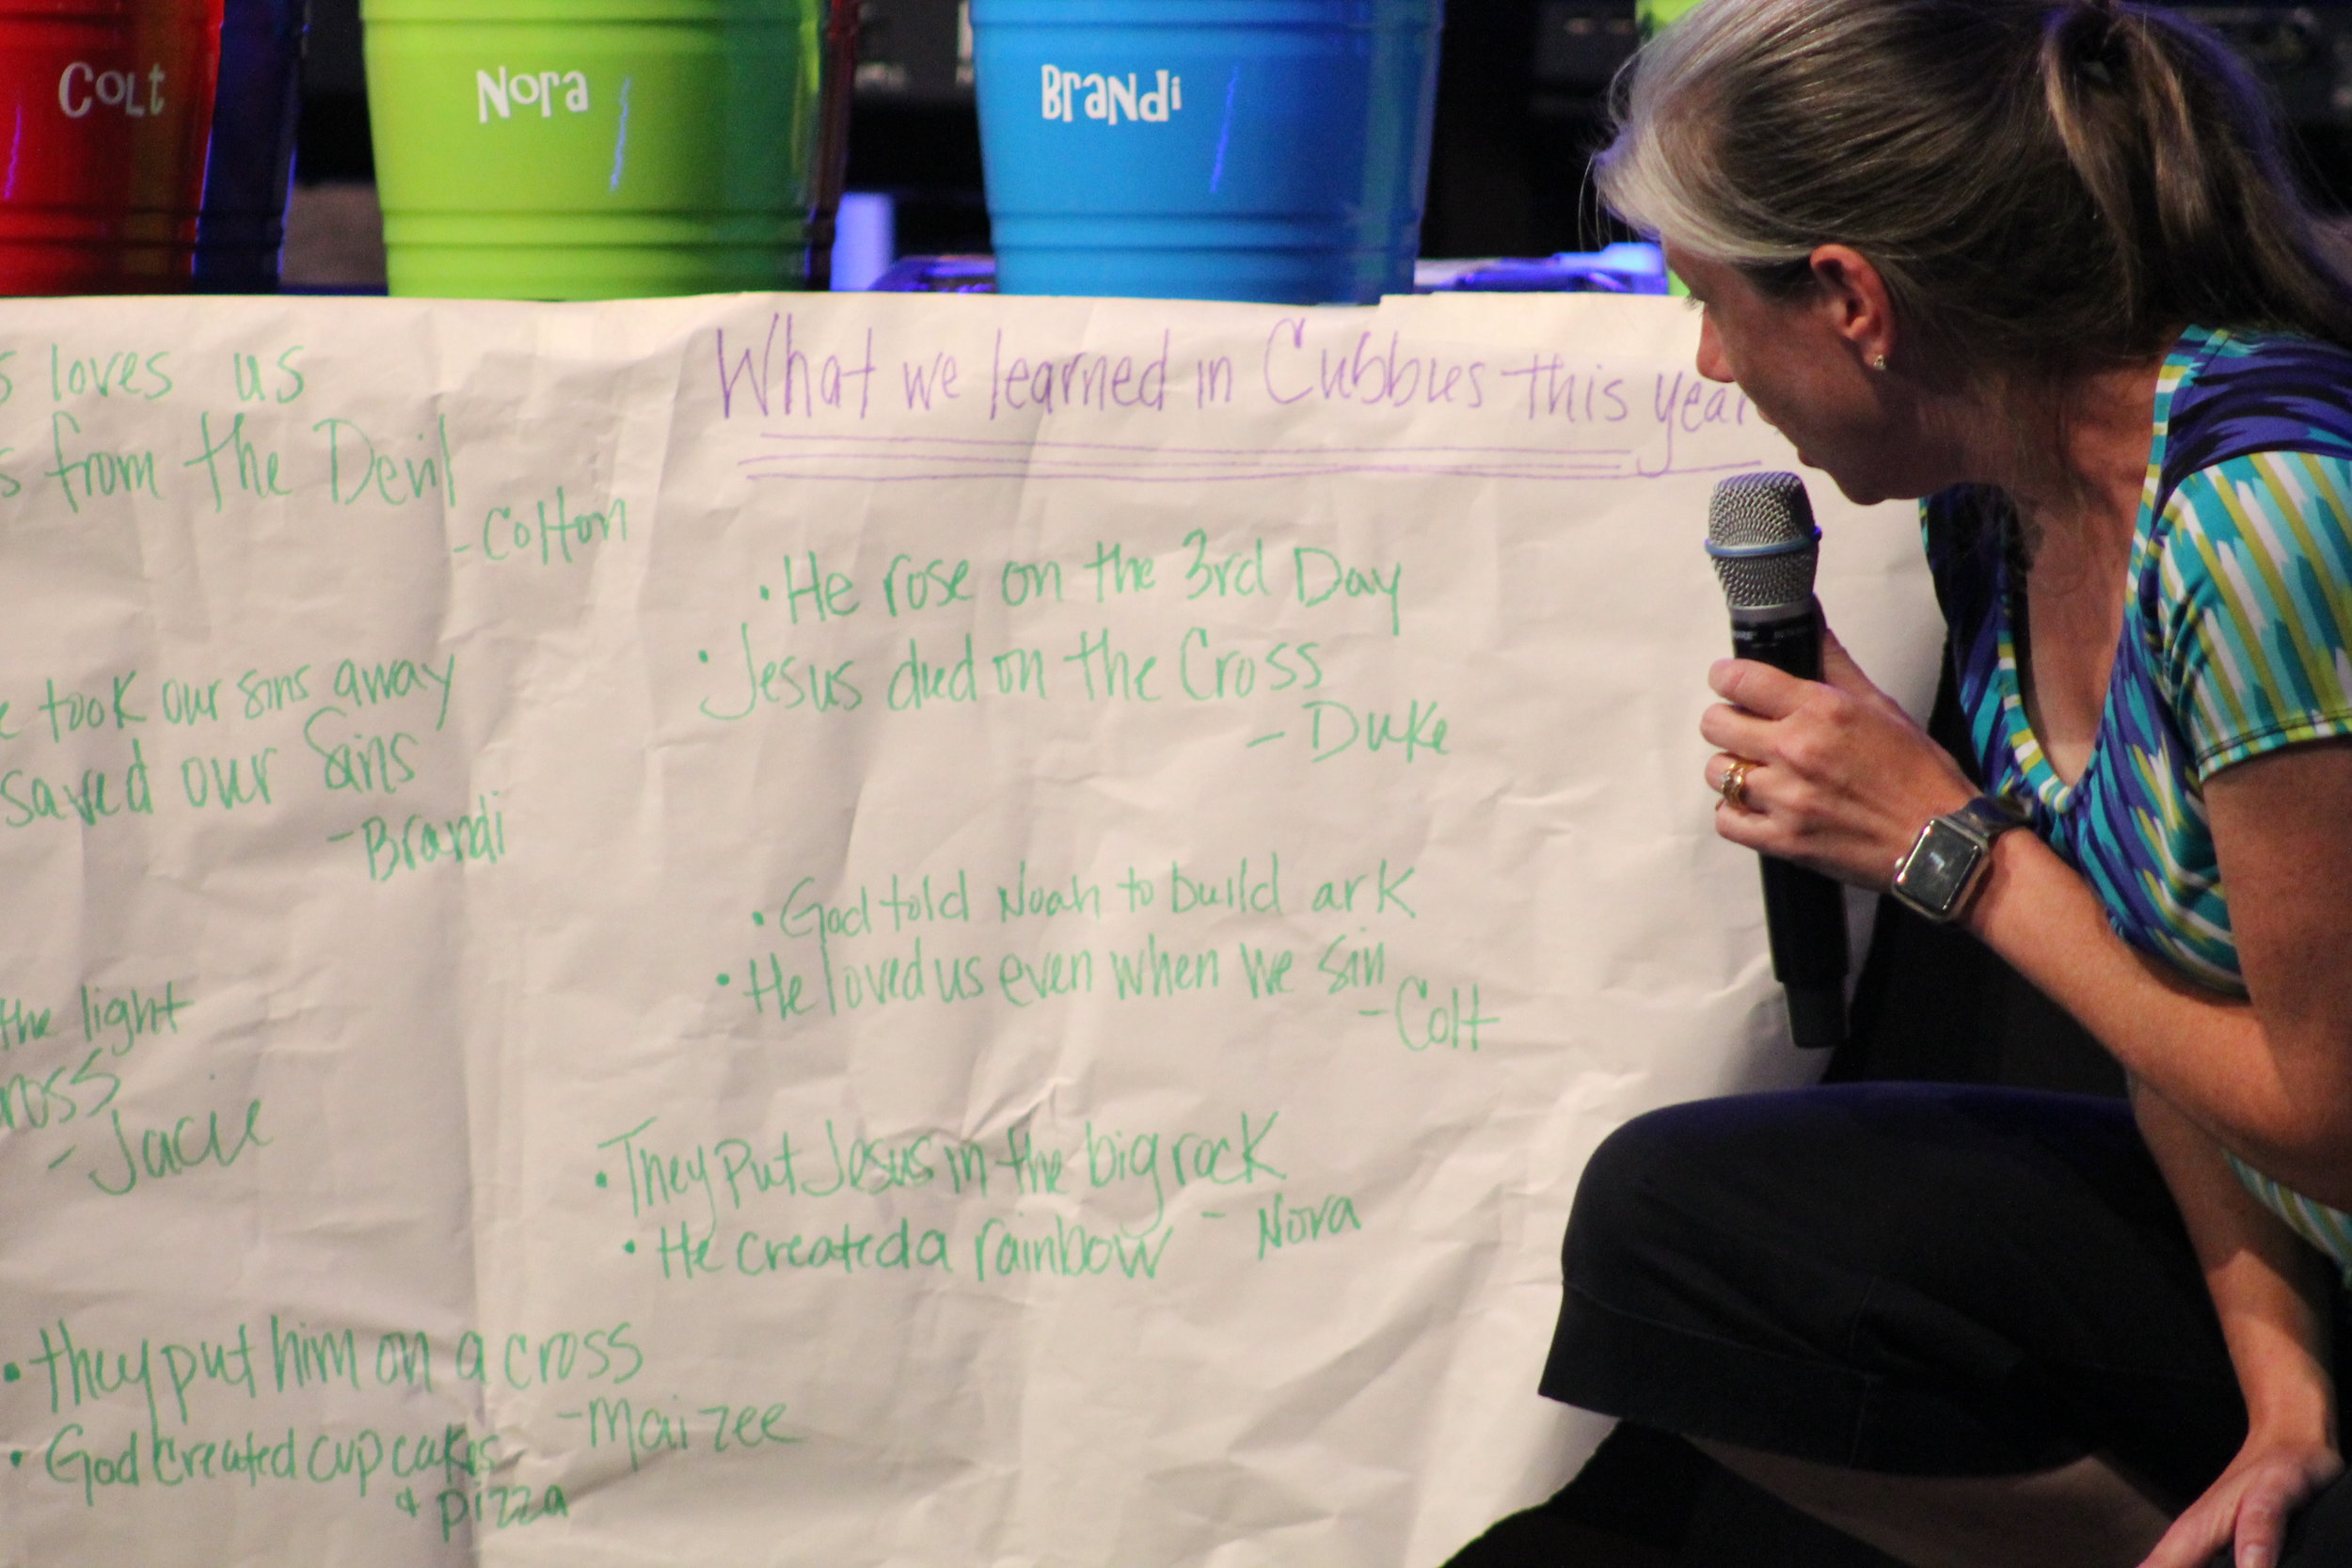 Colt
Nora
Brandi
What we learned in Cubbies this year
s loves us
s from the Devil
-Colton
took our sins away
saved our Sins
-Brandi
the light
ross
-Jacie
• they put him on a cross
-Maizee
• God created cupcakes
& pizza
• He rose on the 3rd Day
• Jesus died on the Cross
- Duke
• God told Noah to build ark
• He loved us even when we sin
-Colt
• They put Jesus in the big rock
- Nora
• He created a rainbow